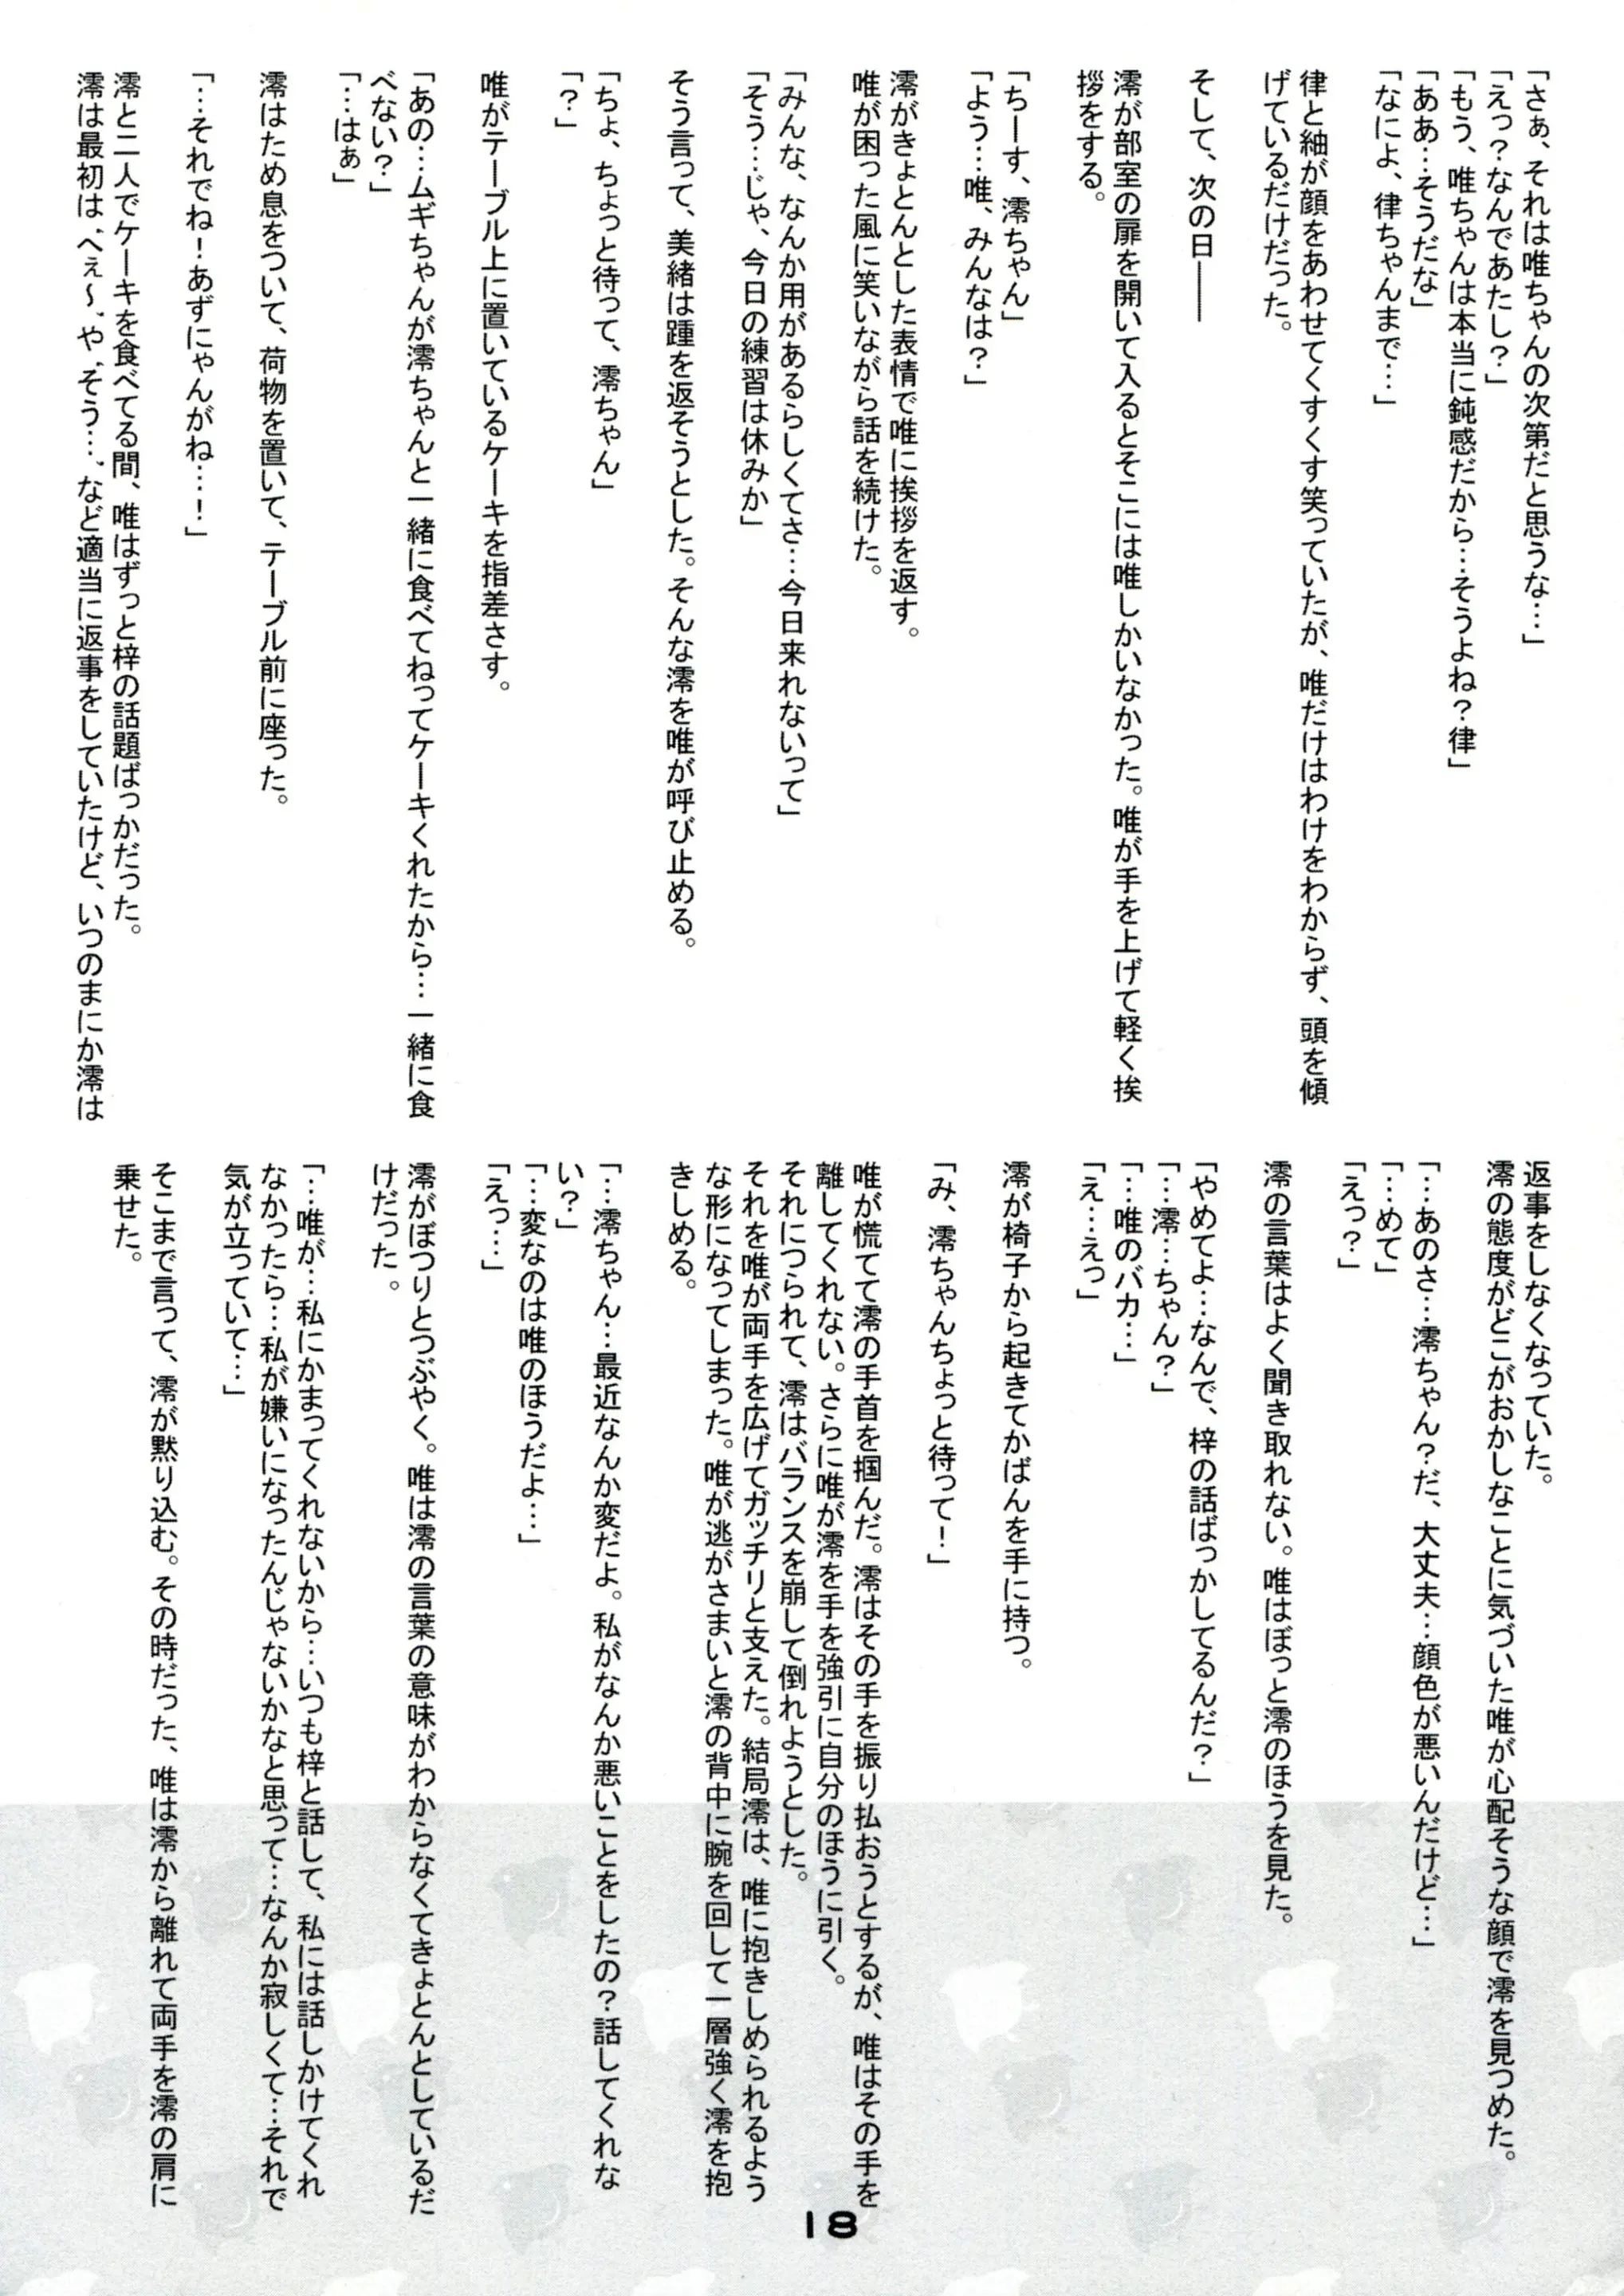 「さぁ、それは唯ちゃんの次第だと思うな…」
「えっ？なんであたし？」
「もう、唯ちゃんは本当に鈍感だから…そうよね？律」
「ああ…そうだな」
「なによ、律ちゃんまで…」
律と紬が顔をあわせてくすくす笑っていたが、唯だけはわけをわからず、頭を傾
げているだけだった。
そして、次の日――
澪が部室の扉を開いて入るとそこには唯しかいなかった。唯が手を上げて軽く挨
拶をする。
「ちーす、澪ちゃん」
「よう…唯、みんなは？」
澪がきょとんとした表情で唯に挨拶を返す。
唯が困った風に笑いながら話を続けた。
「みんな、なんか用があるらしくてさ…今日来れないって」
「そう…じゃ、今日の練習は休みか」
そう言って、美緒は踵を返そうとした。そんな澪を唯が呼び止める。
「ちょ、ちょっと待って、澪ちゃん」
「？」
唯がテーブル上に置いているケーキを指差さす。
「あの…ムギちゃんが澪ちゃんと一緒に食べてねってケーキくれたから…一緒に食
べない？」
「…はぁ」
澪はため息をついて、荷物を置いて、テーブル前に座った。
「…それでね！あずにゃんがね…！」
澪と二人でケーキを食べてる間、唯はずっと梓の話題ばっかだった。
澪は最初は〝へぇ～〟や〝そう…〟など適当に返事をしていたけど、いつのまにか澪は
返事をしなくなっていた。
澪の態度がどこがおかしなことに気づいた唯が心配そうな顔で澪を見つめた。
「…あのさ…澪ちゃん？だ、大丈夫…顔色が悪いんだけど…」
「…めて」
「えっ？」
澪の言葉はよく聞き取れない。唯はぼっと澪のほうを見た。
「やめてよ…なんで、梓の話ばっかしてるんだ？」
「…澪…ちゃん？」
「…唯のバカ…」
「え…えっ」
澪が椅子から起きてかばんを手に持つ。
「み、澪ちゃんちょっと待って！」
唯が慌てて澪の手首を掴んだ。澪はその手を振り払おうとするが、唯はその手を
離してくれない。さらに唯が澪を手を強引に自分のほうに引く。
それにつられて、澪はバランスを崩して倒れようとした。
それを唯が両手を広げてガッチリと支えた。結局澪は、唯に抱きしめられるよう
な形になってしまった。唯が逃がさまいと澪の背中に腕を回して一層強く澪を抱
きしめる。
「…澪ちゃん…最近なんか変だよ。私がなんか悪いことをしたの？話してくれな
い？」
「…変なのは唯のほうだよ…」
「えっ…」
澪がぼつりとつぶやく。唯は澪の言葉の意味がわからなくてきょとんとしているだ
けだった 。
「…唯が…私にかまってくれないから…いつも梓と話して、私には話しかけてくれ
なかったら…私が嫌いになったんじゃないかなと思って…なんか寂しくて…それで
気が立っていて…」
そこまで言って、澪が黙り込む。その時だった、唯は澪から離れて両手を澪の肩に
乗せた。
18